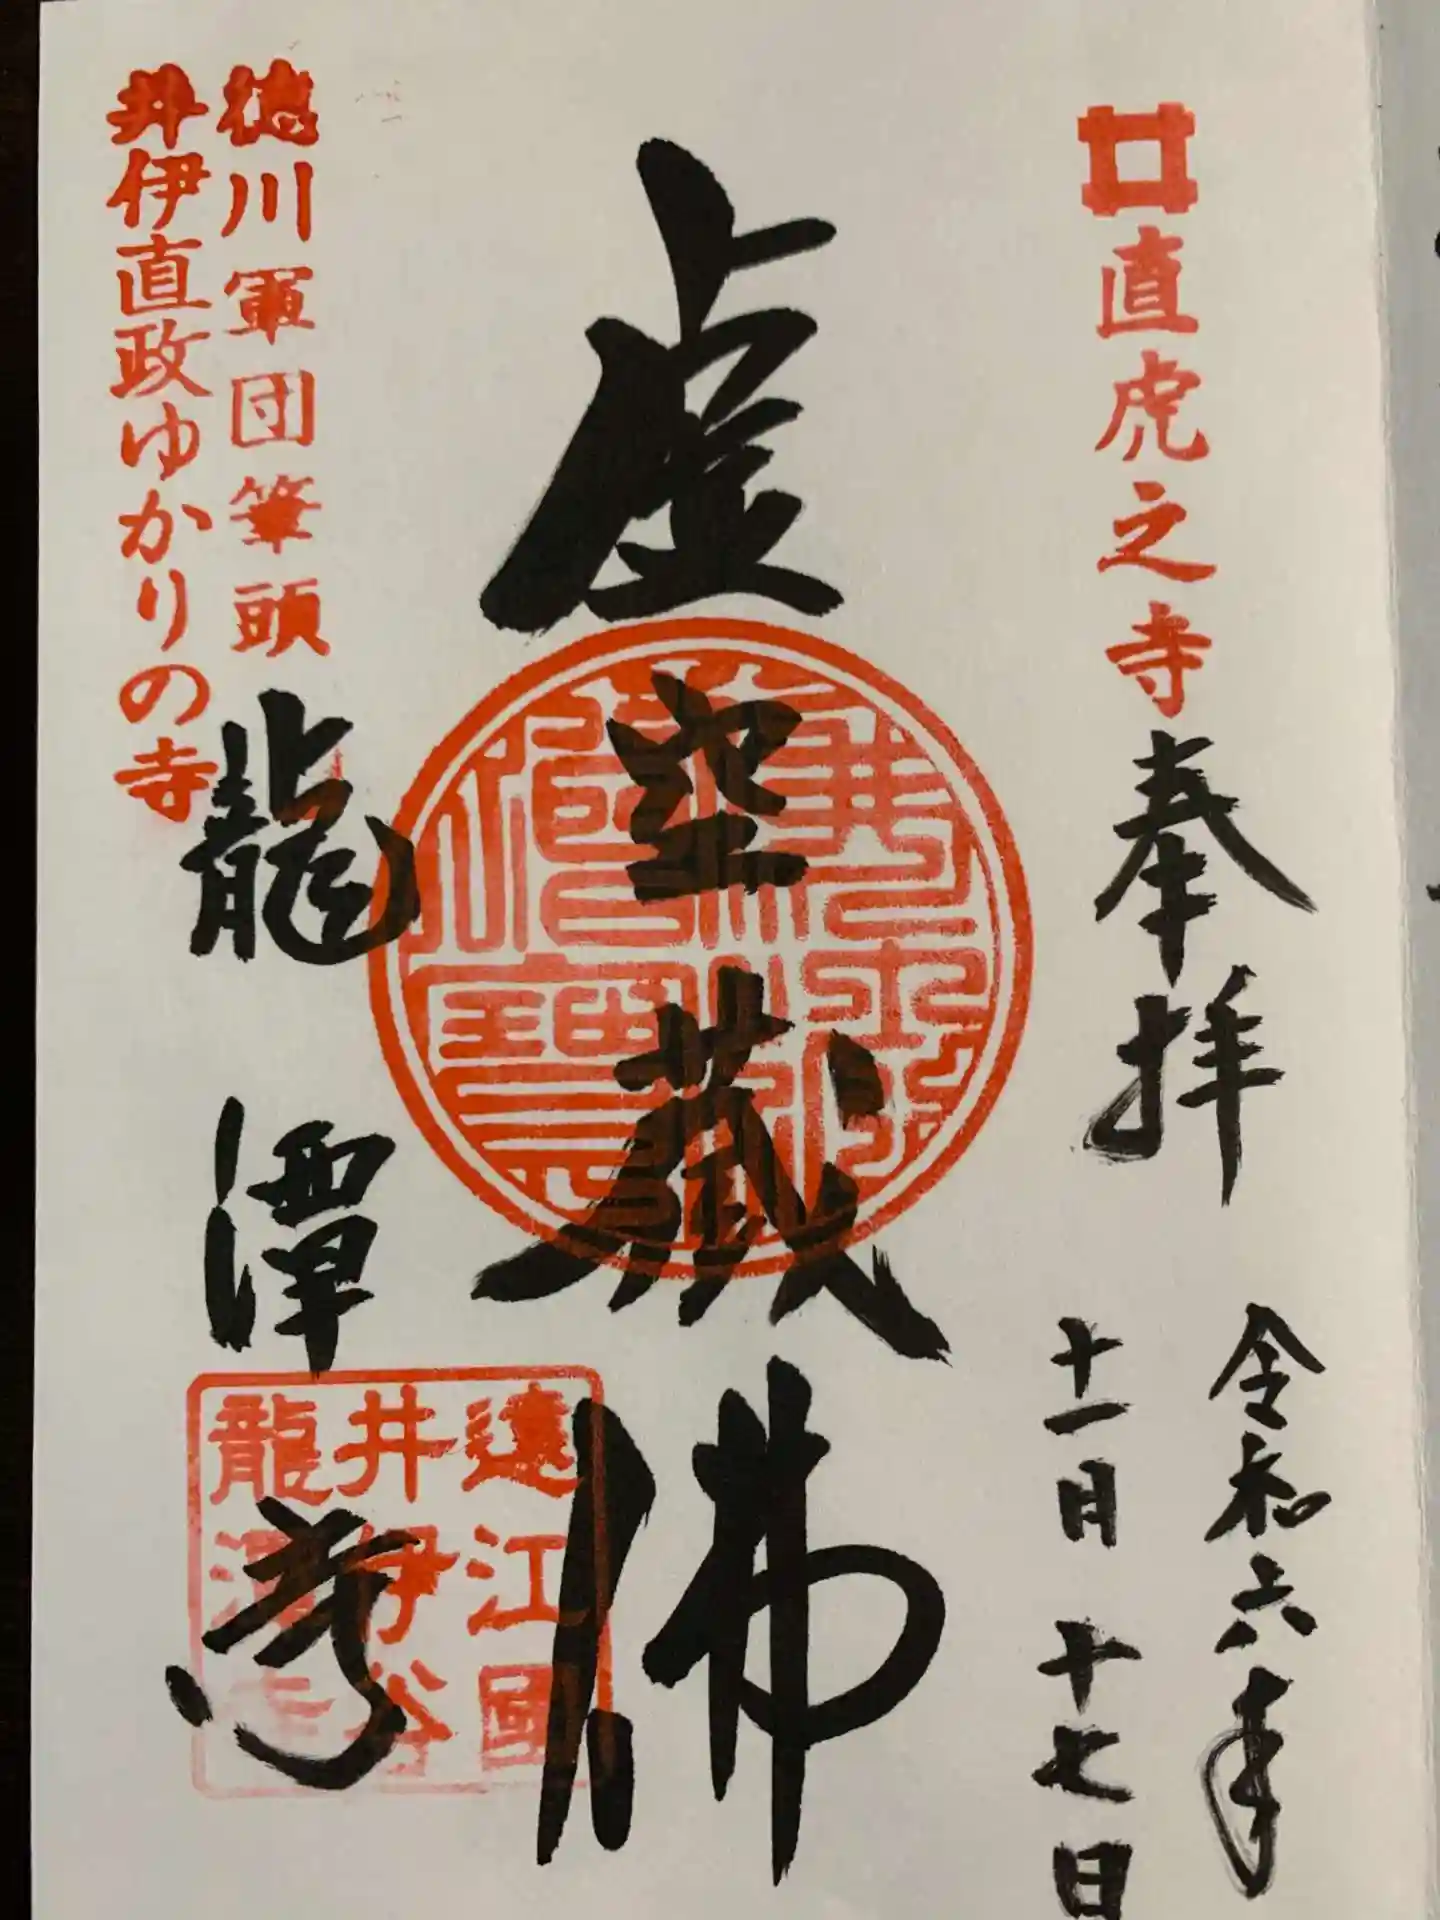 直虎之寺
奉拝
令和六年
十一月十七日
虚空蔵佛
徳川軍団筆頭
井伊直政ゆかりの寺
龍潭寺
遠江國
井伊谷
龍潭寺